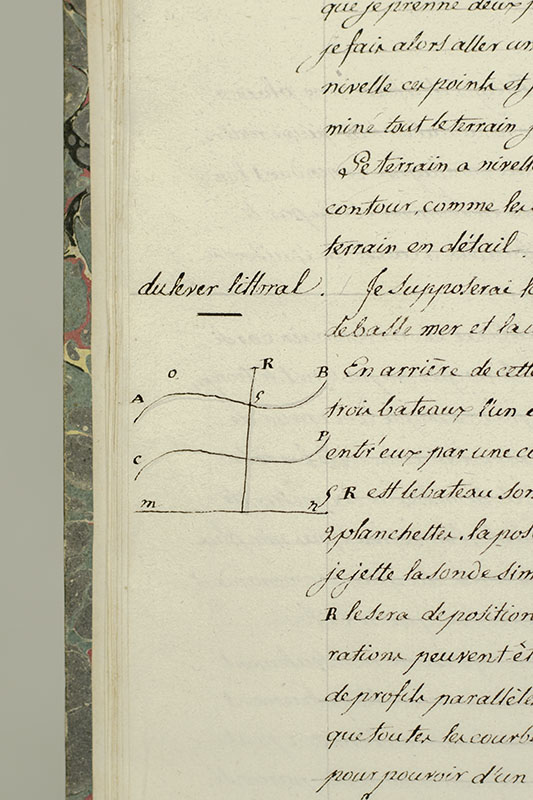 que je prenne deux p
je fais alors aller un
nivelle ces points et j
mine tout le terrain j
Le terrain a nivell
contour, comme les
terrain en détail.
du lever littoral. Je supposerai l
de basse mer et la
o R B En arrière de cett
A S trois bateaux l'un e
C P entr'eux par une co
S R est le bateau son
m n 2 planchettes. la pos
je jette la sonde sim
R le sera de position
rations peuvent êt
de profils parallèle
que toutes les courb
pour pouvoir d'un